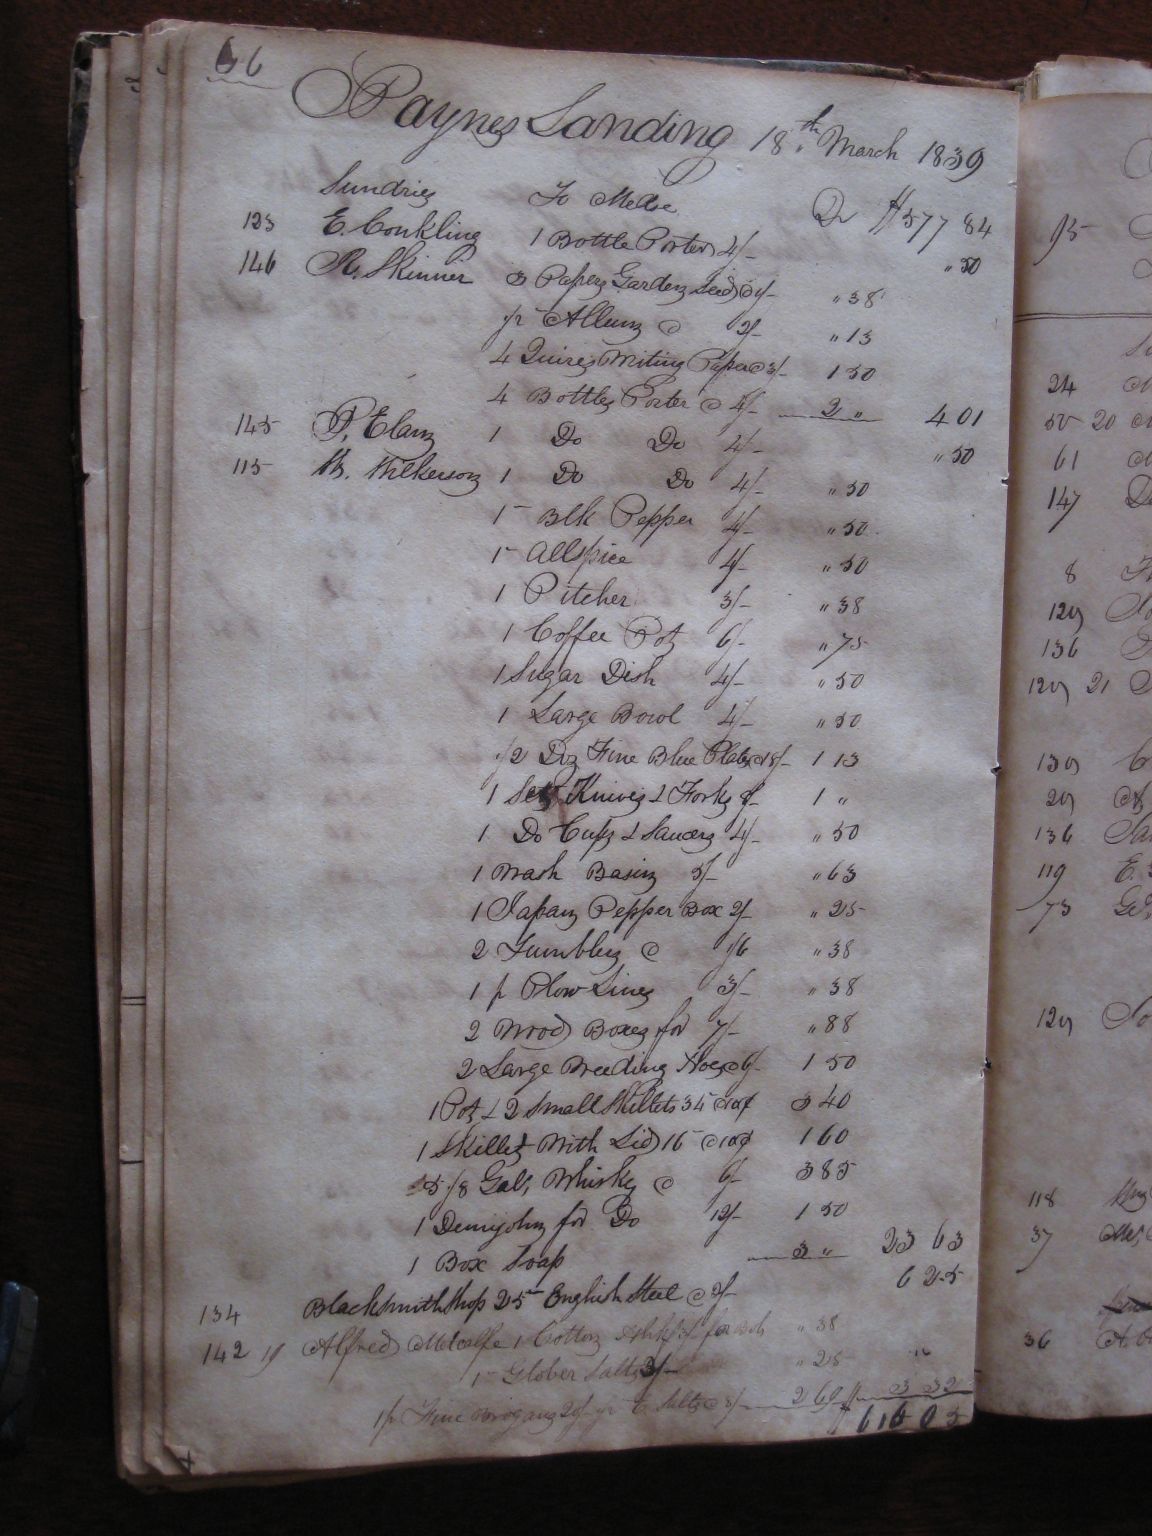 66
Paynes Landing 18th March 1839
Sundries To Mdse Dr $577 84
123 E. Conkling 1 Bottle Porter 4/- " 50
146 R. Skinner 3 Papers Garden Seed @ 1/- " 38
1/2 Allum @ 2/- " 13
4 Quires Writing Paper @ 3/- 1 50
4 Bottles Porter @ 4/- 2 " 4 01
145 P. Elam 1 Do Do 4/- " 50
115 Wilkerson 1 Do Do 4/- " 50
1 Blk Pepper 4/- " 50
1 Allspice 4/- " 50
1 Pitcher 3/- " 38
1 Coffee Pot 6/- " 75
1 Sugar Dish 4/- " 50
1 Large Bowl 4/- " 50
1/2 Doz Fine Blue Plates @ 18/- 1 13
1 Set Knives & Forks 8/- 1 "
1 Do Cups & Saucers 4/- " 50
1 Wash Basin 5/- " 63
1 Japan Pepper Box 2/- " 25
2 Tumblers @ 1/6 " 38
1 p Plow Lines 3/- " 38
2 Wood Boxes for 7/- " 88
2 Large Weeding Hoes @ 6/- 1 50
1 Pot & 2 Small Skillets 34 @ 10¢ 3 40
1 Skillet With Lid 16 @ 10¢ 1 60
5 1/8 Gals, Whisky @ 6/- 3 85
1 Demijohn for Do 12/- 1 50
1 Box Soap 3 " 23 63
134 Blacksmith Shop 25 English Steel @ 2/- 6 25
142 19 Alfred Metcalfe 1 Cotton " 38
1 Glober Salts 2/- " 25
1 p Fine Brogans 20/- Salts @ 2 69 3 32
$ 616 05
95
24
50 20
61
147
8
129
136
129 21
139
29
136
119 E.
73
129
118
37
36